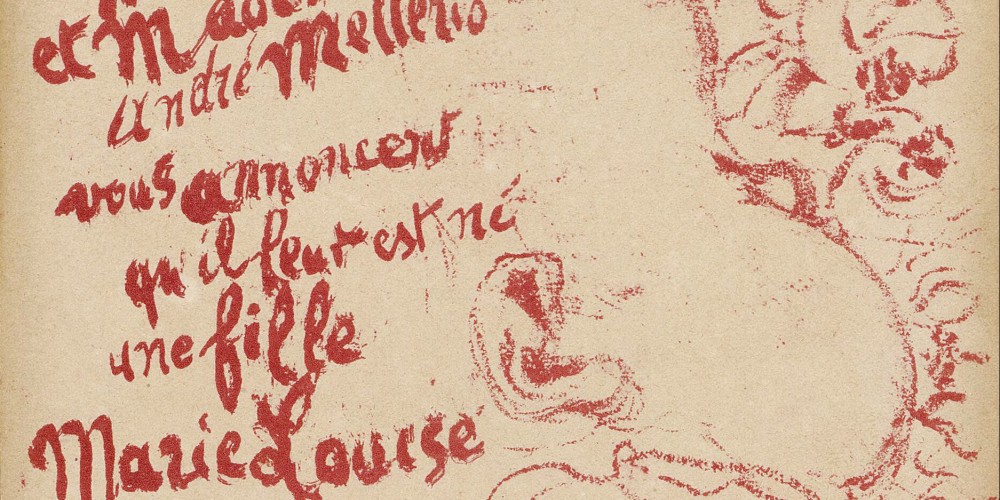 et Madame
André Mellerio
vous annoncent
qu'il leur est né
une fille
Marie Louise